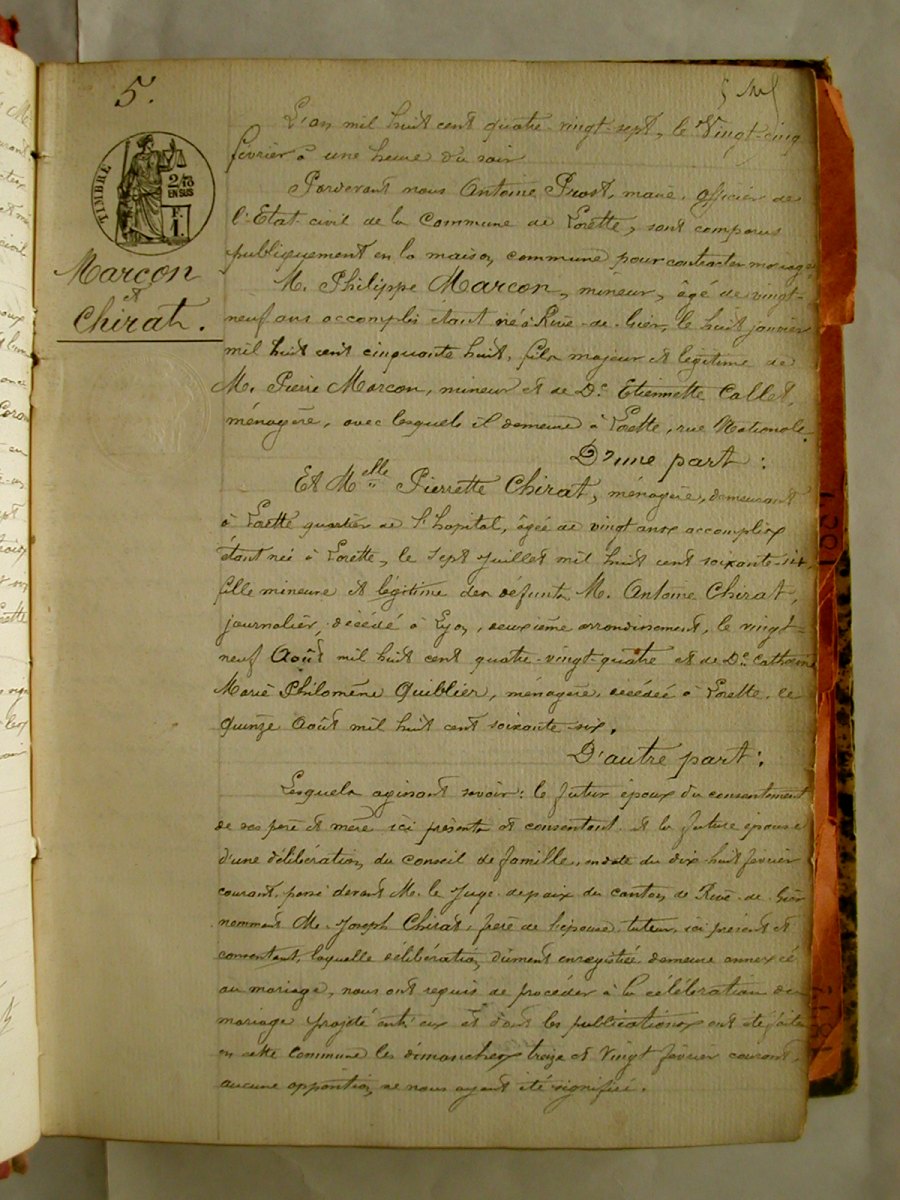 5.
TIMBRE
2/10
EN SUS
F.
1.
Marcon
et
Chirat.
L'an mil huit cent quatre-vingt-sept, le Vingt-cinq
février à une heure du soir
Pardevant nous Antoine Prost, maire, officier de
l'Etat-civil de la Commune de Lorette, sont comparus
publiquement en la maison commune pour contracter mariage
M. Philippe Marcon, mineur, âgé de vingt-
neuf ans accomplis étant né à Rive-de-Gier, le huit janvier
mil huit cent cinquante huit, fils majeur et légitime de
M. Pierre Marcon, mineur et de De Etiennette Collet,
ménagère, avec lesquels il demeure à Lorette, rue Nationale.
D'une part :
Et Melle Pierrette Chirat, ménagère, demeurant
à Lorette quartier de l'hopital, âgée de vingt ans accomplis
étant née à Lorette, le sept juillet mil huit cent soixante-six,
fille mineure et légitime des défunts M. Antoine Chirat,
journalier, décédé à Lyon, deuxième arrondissement, le vingt-
neuf Août mil huit cent quatre-vingt-quatre et de De Catherine
Marie Philomène Quiblier, ménagère, décédée à Lorette, le
quinze Août mil huit cent soixante-six.
D'autre part :
Lesquels agissant savoir : le futur époux du consentement
de ses père et mère ici présents et consentant et la future épouse
d'une délibération du conseil de famille, en date du dix huit février
courant, passé devant M. le Juge de paix du canton de Rive-de-Gier
nommant M. Joseph Chirat, frère de l'épouse, tuteur, ici présent et
consentant, laquelle délibération, dûment enregistrée demeure annexée
au mariage, nous ont requis de procéder à la célébration du
mariage projeté entr'eux et dont les publications ont été faites
en cette commune les dimanches treize et vingt février courant,
aucune opposition ne nous ayant été signifiée.